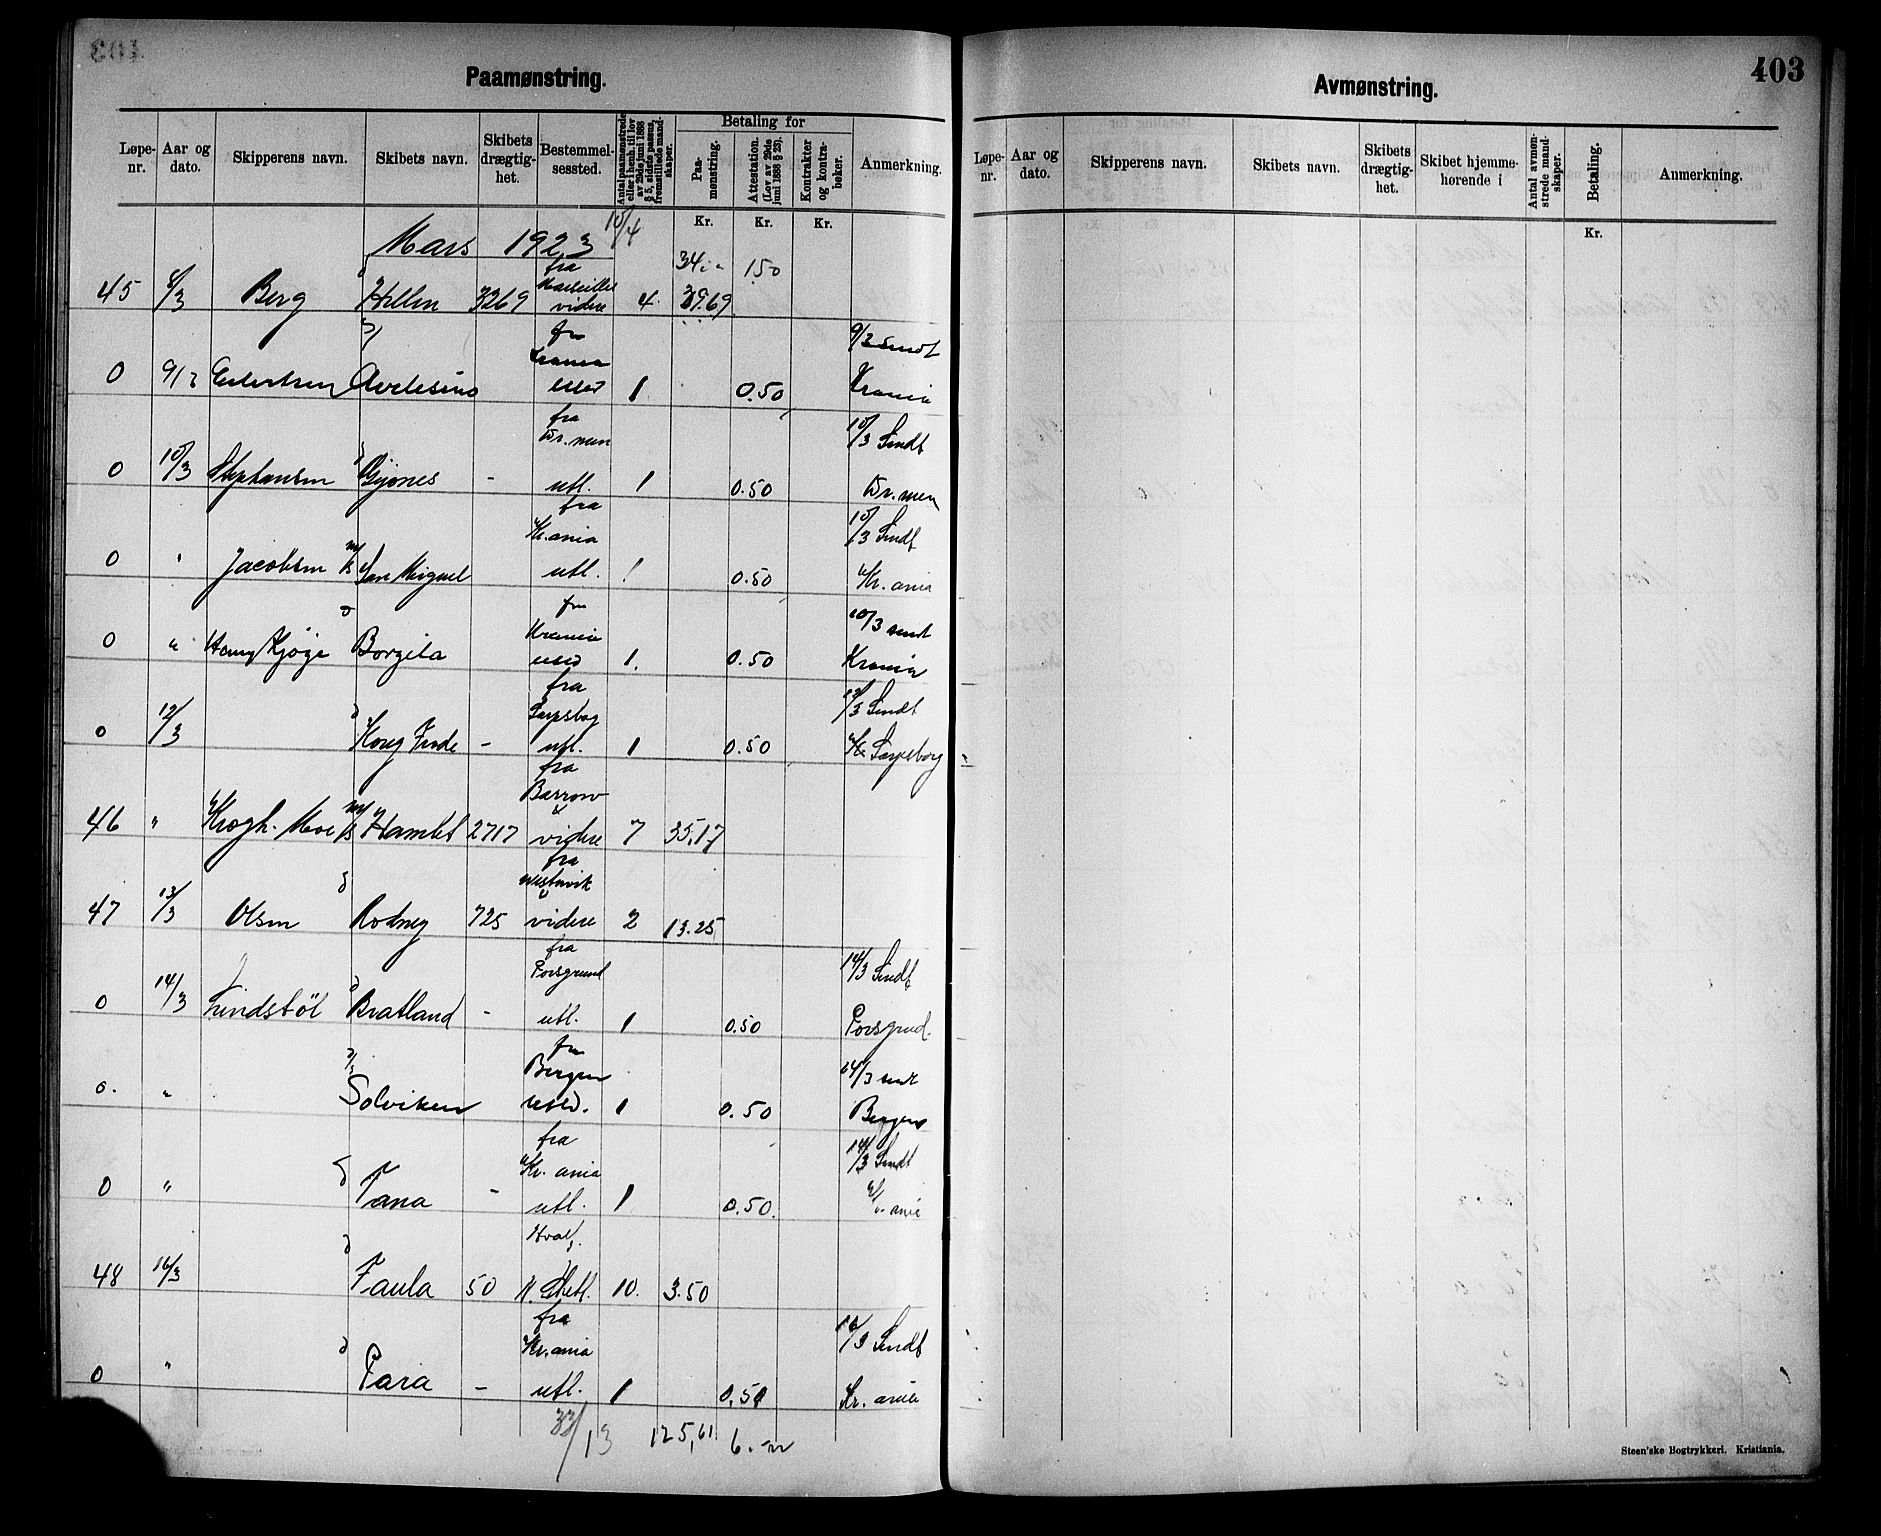 Paamønstring.
Løpe-nr. Aar og dato. Skipperens navn. Skibets navn. Skibets drægtighet. Bestemmelsessted. Antal paamønstrede eller i henh. til lov av 29de juni 1888 § 5, sidste passus, fremstillede mandskaper. Betaling for Paamønstring. Attestation. (Lov av 29de juni 1888 § 23). Kontrakter og kontrabøker. Anmerkning.
Kr. Kr. Kr.
Mars 1923 10/4
34.- 150
fra
45 6/3 Berg Hellen 3269 Marseilles videre 4 39.69
fra 9/3 sendt
0 9/3 Avelesino Krania utld 1 0.50 Krania
fra Dr.men 10/3 Sendt
0 10/3 Stephansen Gyones - utl. 1 0.50 Dr.men
fra Kr.ania 10/3 Sendt
0 " Jacobsen m/s San Miguel utl. 1 0.50 Kr.ania
fra Krania 10/3 sendt
0 " Borgila utld 1. 0.50 Krania
fra Sarpsborg 12/3 Sendt
0 12/3 Kong Frode - utl. 1 0.50 Sarpsborg
fra Barrow
46 " Krogh. Moe m/s Hamlet 2717 videre 7 35,17
fra Westervik
47 13/3 Olsen Rodney 725 videre 2 13.25
fra Porsgrund 14/3 Sendt
0 14/3 Lindstöl Bratland - utl. 1 0.50 Porsgrund.
fra Bergen 14/3 sendt
0. " Solviken utld. 1 0.50 Bergen
fra Kr.ania 14/3 Sendt
0 " Tana - utl. 1 0.50. Kr.ania
Hvalf.
48 16/3 Faula 50 N. Shetl. 10. 3.50
fra Kr.ania 16/3 Sendt
0 " Fara - utl. 1 0,50 Kr. ania
33/13 125,61 6.-
Avmønstring.
403
Løpe-nr. Aar og dato. Skipperens navn. Skibets navn. Skibets drægtighet. Skibet hjemmehørende i Antal avmønstrede mandskaper. Betaling. Anmerkning.
Kr.
Steen'ske Bogtrykkeri. Kristiania.